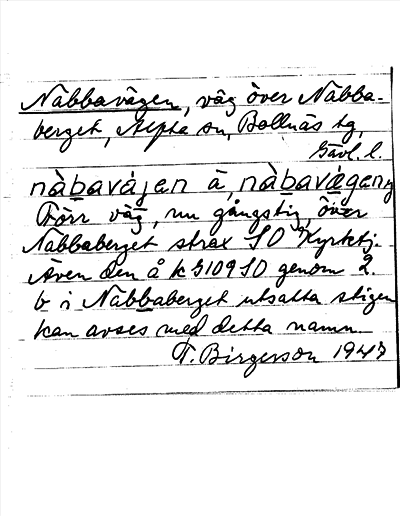 Nabbavägen, väg över Nabba-
berget, Alfta sn, Bollnäs tg,
Gävl. l.
nàbavájen ä, nàbavägen
Förr väg, nu gångstig, över
Nabbaberget strax SO Kyrktj.
Även den å k S109 SO genom 2.
b i Nabbaberget utsatta stigen
kan avses med detta namn
T. Birgersson 1947